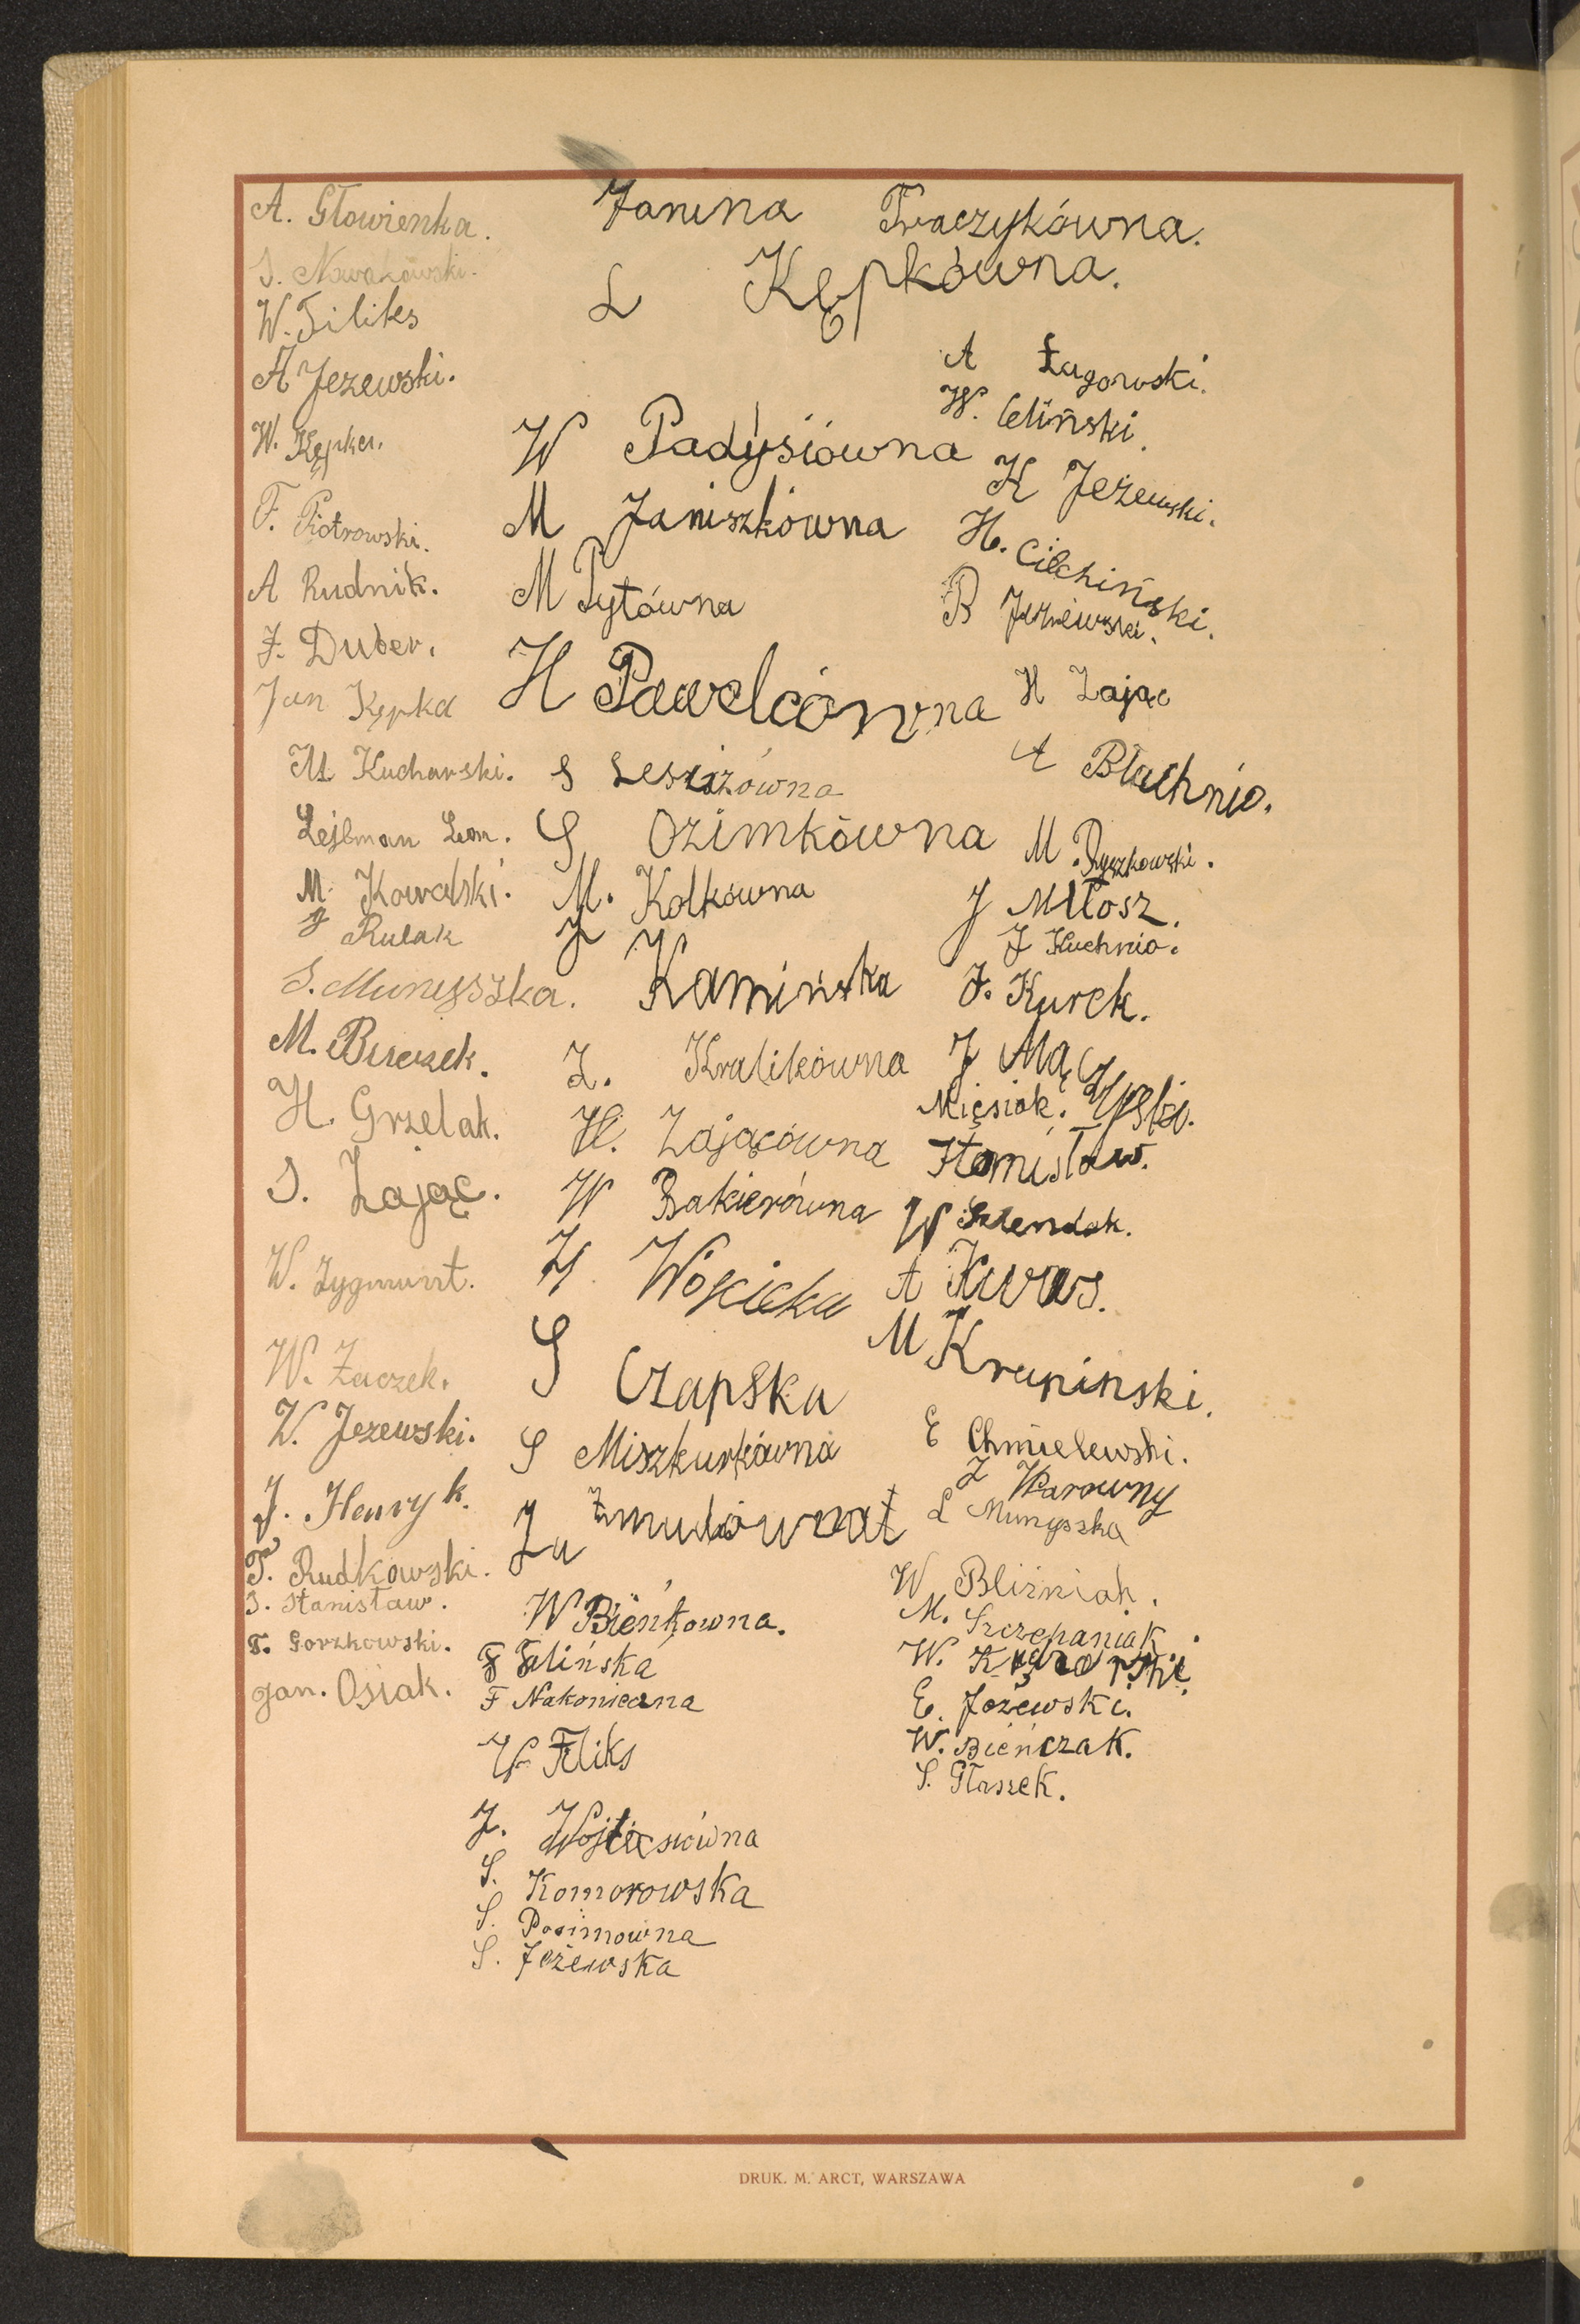 A. Głowienka.
S. Nowakowski.
W. Filiks
A Jezewski.
W. Kępka.
F. Piotrowski.
A Rudnik.
J. Duber.
Jan Kępka
M Kucharski.
Lejbman Lem.
M. Kowalski.
J Rulak
S. Munyszka.
M.
H. Grzelak.
S. Zając.
W. Zygmunt.
W. Zaczek.
W. Jezewski.
J. Henryk.
T. Rudkowski.
S. Stanisław.
T. Gorzkowski.
Jan. Osiak.
Janina Traczykówna.
L Kępkówna.
W Padysiówna
M Janiszkówna
M Pytówna
H Pawelcówna
S
S Ozimkówna
M. Kolkówna
J Kamińska
Z. Kralikówna
H. Zającówna
W Bakierówna
H Wójcicka
S Czapska
S Miszkurkówna
W Bieńkowna.
F Felińska
F Nakonieczna
W Filiks
J. Wójcicówna
S. Komorowska
S.
S. Jeżewska
A Łagowski.
W. Celiński.
K Jeżewski.
H. Cilchiński.
B
H Zając
A Błachnio.
M. Ryszkowski.
J Miłosz.
J Kuchnio.
J. Kurek.
J Mączyński.
Mięsiak.
Stanisław.
W Szlendak.
A Kuras.
M Krupinski.
E Chmielewski.
Z Warowny
L Munyszka
W Bliźniak.
M. Szczepaniak.
W.
E. Jożewski.
W. Bieńczak.
S. Głaszek.
DRUK. M. ARCT, WARSZAWA